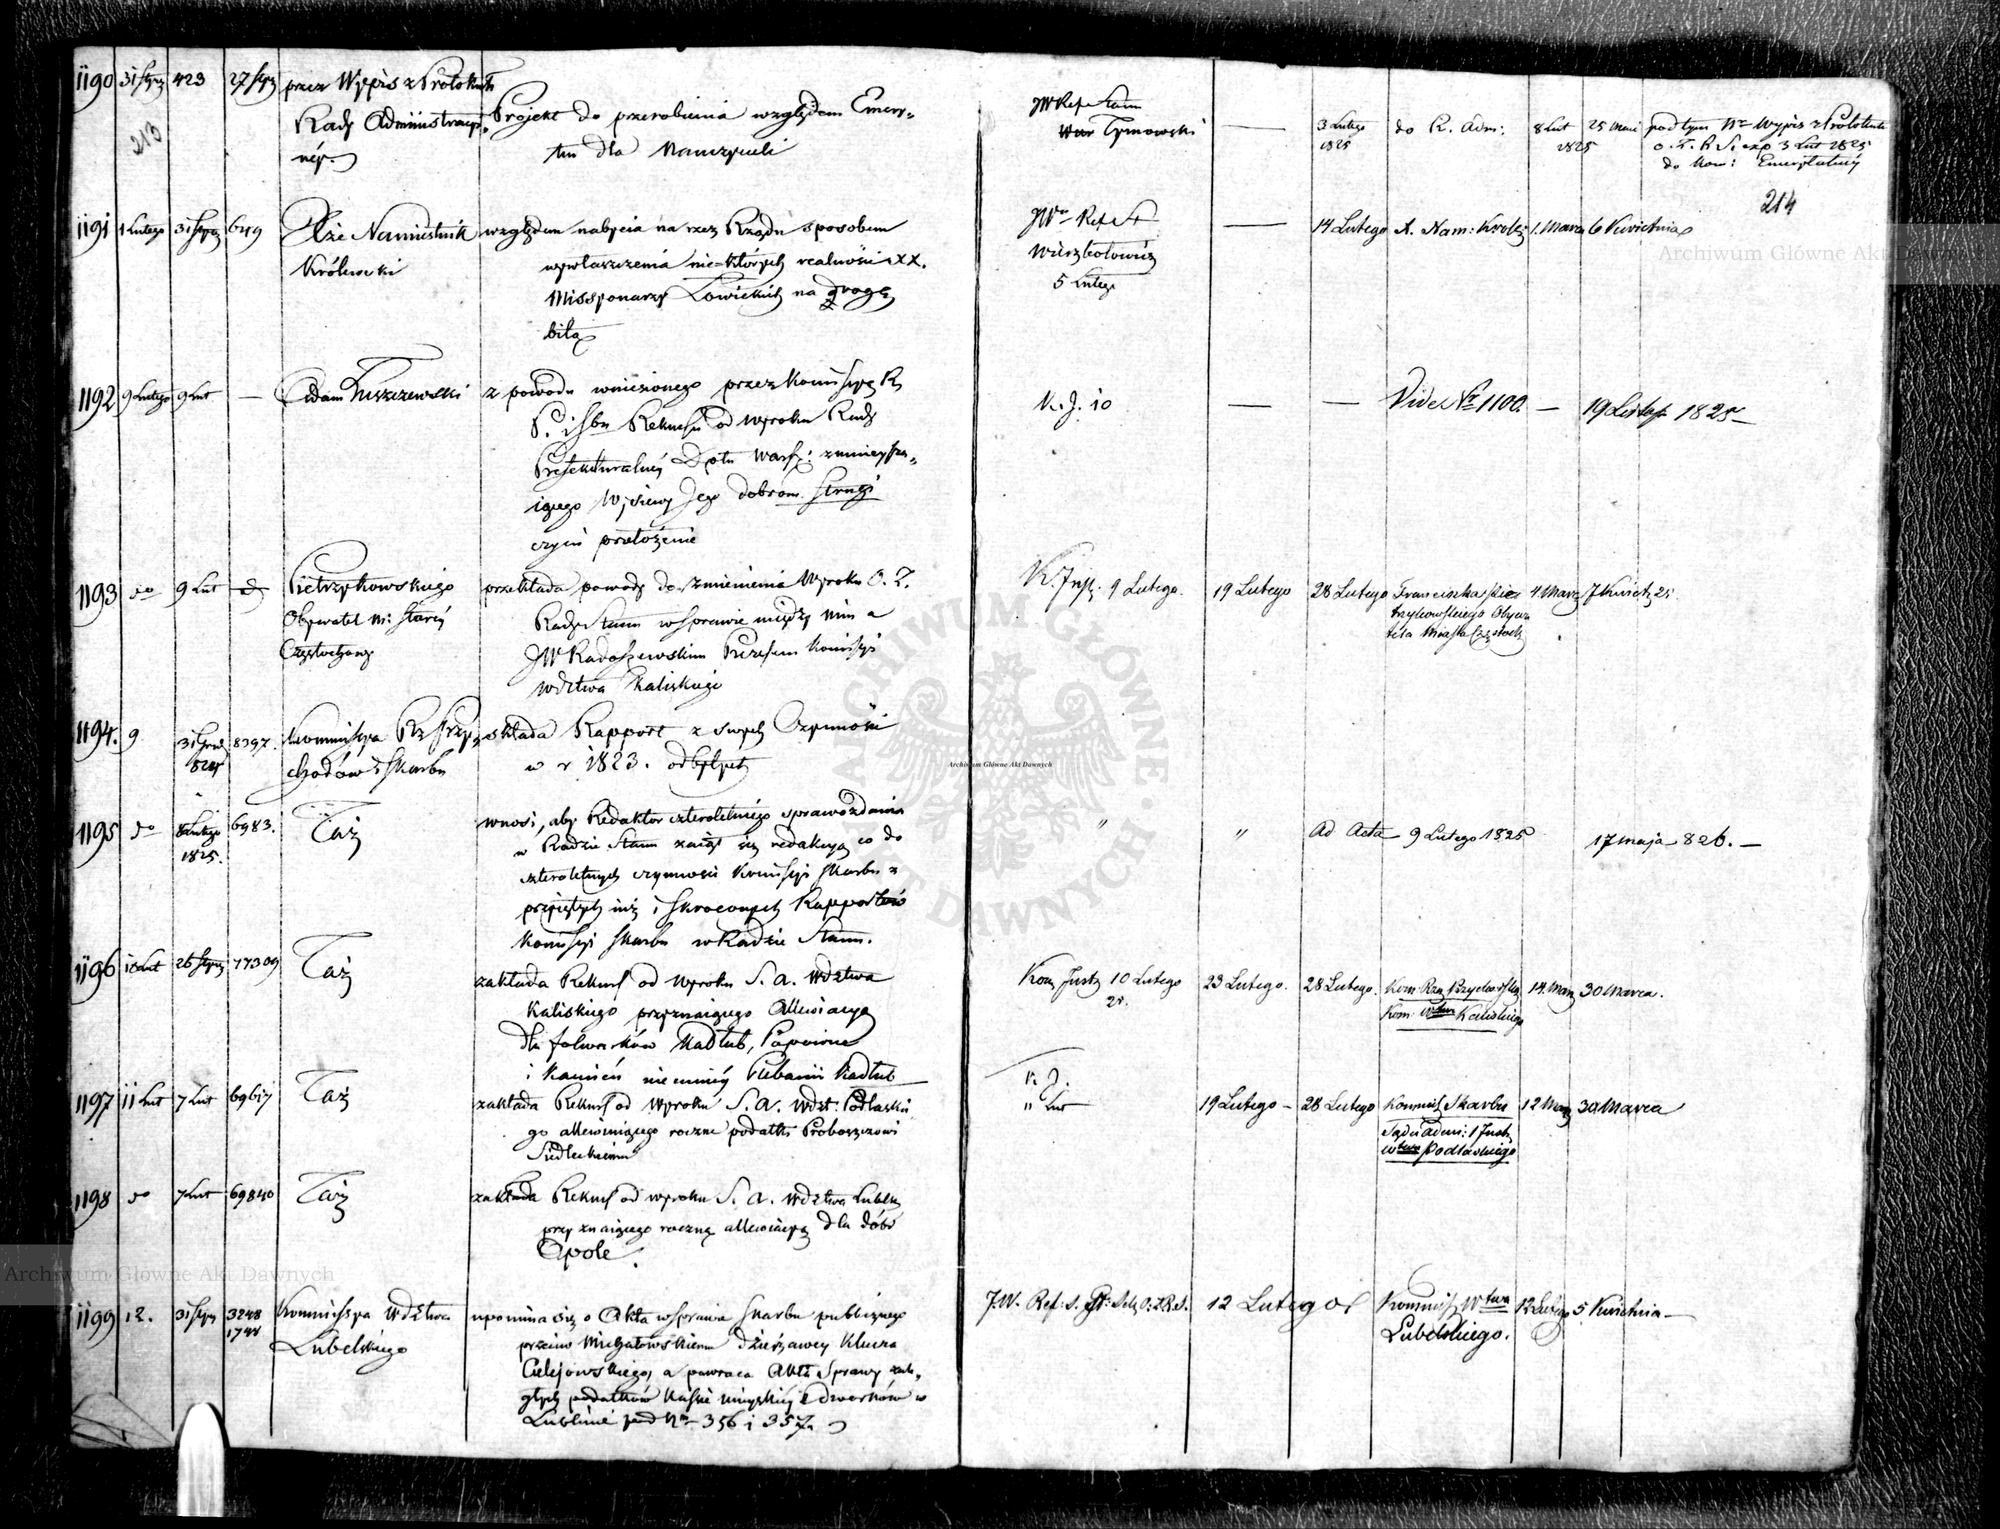 1190 31 Stycz 423 27 Stycz przez Wypis z Protokułu
Rady Administracyi
néy.
Projekt do przerobienia względem Emery
tur dla Nauczycieli
JW Ref Stanu
Tymowski
3 Lutego
1825
do R. Adm:
8 Lut
1825
25 Marc
pod tym Nr Wypis z Protokułu
3 Lut 1825
do Kom: Emerytalnéy
213
214
1191 1 Lutego 31 Stycz 649 Xże Namiestnik
Królewski
względem nabycia na rzecz Rządu sposobem
wywłaszczenia niektórych realności XX.
Missyonarzy Łowickich na drogę
bitą
JWo Ref St
Wierzbołowicz
5 Lutego
14 Lutego X. Nam: Krolew 1. Marca 6 Kwietnia
1192 9 Lutego 9 Lut — Adam Łuszczewski
z powodu wniesionego przez Kommissyą R
P. i Sbu Rekursu od wyroku Rady
Prefekturalnéy Dptu Warsz: zmnieysza
iącego Wysiewy Jego dobrom Strugi
czyni przełożenie
K. J. 10
— — Vide Nr 1100. — 19 Listop 1825 —
1193 do 9 Lut d Pietrzykowskiego
Obywatel m: Staréy
Częstochowy
przekłada powody do zmienienia Wyroku O. Z.
Rady Stanu w sprawie między nim a
JW Radoszewskim Prezesem Kommissyi
Wdztwa Kaliskiego
9 Lutego. 19 Lutego 28 Lutego Franciszka Pie
trzykowskiego Obywa
tela Miasta Częstoch
4 Marz 7 Kwiet 25
1194. 9 31 Grud
824
8397. Kommissya Rz Przy
chodów i Skarbu
składa Rapport z swych Czynności
w r 1823. odbytych
1195 do 8 Lutego
1825.
6983. Taż
wnosi, aby Redaktor czteroletniego sprawozdania
w Radzie Stanu zaiął się redakcyą co do
czteroletnych czynności Kommissyi Skarbu z
przyiętych iuż i skroconych Rapportów
Kommissyi Skarbu w Radzie Stanu.
" " Ad Acta 9 Lutego 1825 17 maja 826. —
1196 10 Lut 26 Stycz 77309 Taż
zakłada Rekurs od Wyroku S. A. Wdztwa
Kaliskiego przyznaiącego Allewiacyą
dla folwarków Kadłub, Popowice
i Kamień niemniéy Plebanii Kadłub
Kom Justz 10 Lutego
25.
23 Lutego. 28 Lutego. Kom: Rzą Przychod Skar
Kom: Wtwa Kaliskiego
14. Marz 30 Marca.
1197 11 Lut 7 Lut 69617 Taż
zakłada Rekurs od Wyroku S. A. Wdzt: Podlaski
go allewiuiącego roczne podatki Proboszczowi
Siedleckiemu
K. J.
11 Lut
19 Lutego — 28 Lutego Kommis Skarbu
Sądu Adm: i Justz
Wtwa Podlaskiego
12 Marz 30 Marca
1198 do 7 Lut 69840 Taż
zakłada Rekurs od wyroku S. A. Wdztwa Lubelsk
przyznaiącego roczną allewiacyą dla dóbr
Opole.
1199 12. 31 Stycz 3248
1744
Kommissya Wdztwa
Lubelskiego
upomina się o Akta w sprawie Skarbu publicznego
przeciw Michałowskiemu Dzierżawcy Klucza
Celejowskiego, a powraca Akta Sprawy zale
głych podatków Kassie mieyskiéy z dworków w
Lublinie pod Nr 356 i 357.
12 Lutego Kommiss Wtwa
Lubelskiego.
12 Lutego 5. Kwietnia —
Archiwum Główne Akt Dawnych
Archiwum Główne Akt Dawnych
Archiwum Główne Akt Dawnych
ARCHIWUM GŁÓWNE AKT DAWNYCH